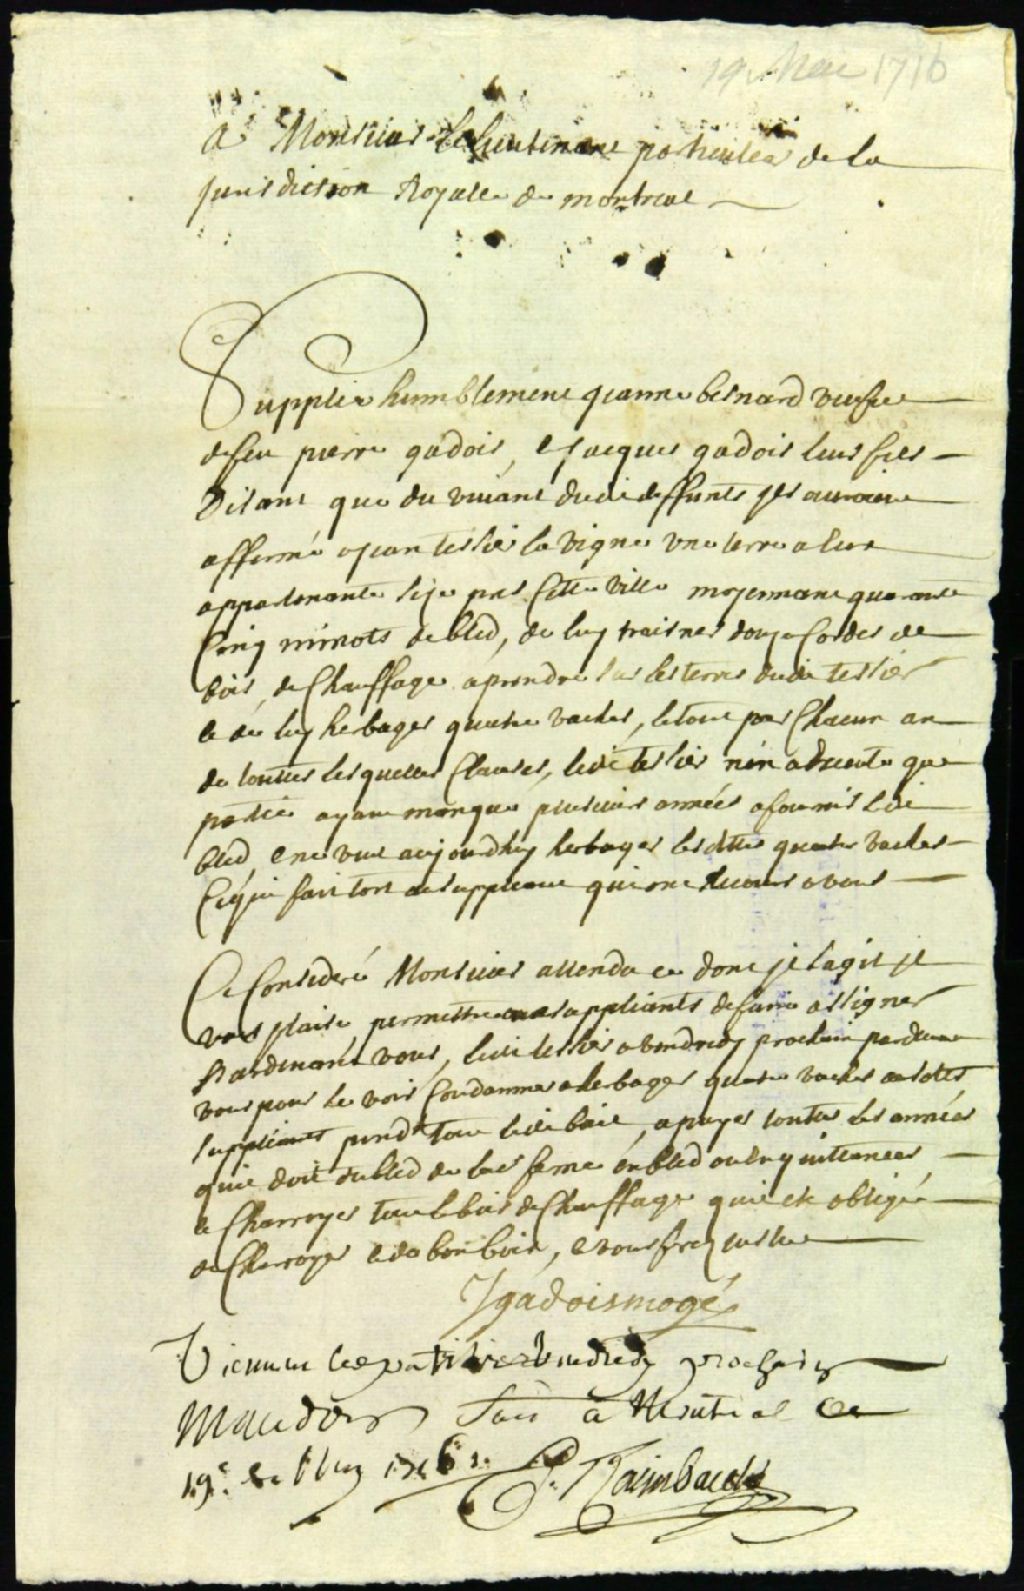 19 Mai 1716
A Monsieur Le Lieutenant particulier de la
jurisdiction Royalle de montreal
Supplie humblement Jeanne besnard veufve
de feu pierre gadois, et Jacques gadois leur fils
Disant que du vivant dudit deffunts ils auroient
affermé a Jean tessier la vigne une terre a leur
appartenante size pres Cette Ville moyennant quarante
Cinq minots de bled, de luy traisner douze Cordes de
bois de Chauffage a prendre sur les terres dudit tessier
et de luy herbager quatre vaches, le tout par Chacun an
de touttes lesquelles Clauses, ledit tessier n'en a execute que
partie ayant manqué plusieurs années a fournir ledit
bled et ne veut aujourdhuy herbager lesdittes quatre vaches
Ce qui fait tort aux suppliant qui ont recours a vous
Ce Consideré Monsieur attendu ce dont il s'agit il
vous plaise permettre aux suppliants de faire assigner
Pardevant vous, ledit tessier a vendredy prochain pardevant
vous pour se voir Condamner a herbager quatre vaches ausdits
suppliants pendt tout ledit bail, a payer toutes les années
qu'il doit du bled de leur ferme en bled ou en quittances
et Charroyer tout le bois de Chauffage qu'il est obligé
de Charroyer et du bon bois, et vous ferez justice
J gadoismogé
Vienne les parties vendredy prochain
Mandons &c fait à Montreal Ce
19e de May 1716. P. Raimbault